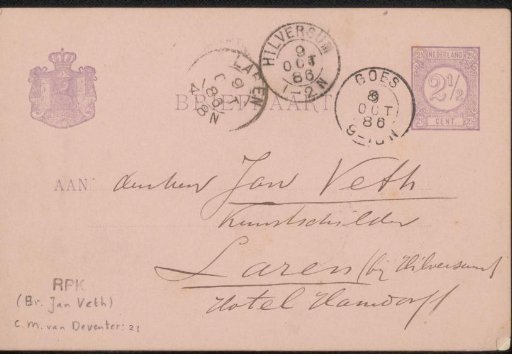 HILVERSUM
9
OCT
86
1-2N
LAREN
9
86
4-8N
GOES
8
OCT
86
9-10N
NEDERLAND
2½
CENT
BRIEFKAART
AAN
den heer Jan Veth
Kunstschilder
Laren (bij Hilversum)
Hotel Hamdorff
RPK
(Br. Jan Veth)
C.M. van Deventer: 21